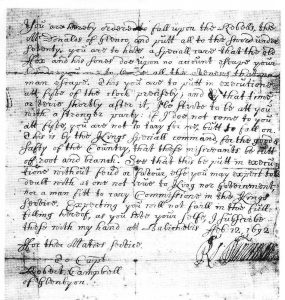 You are hereby ordered to fall upon the Rebells, the
McDonalds of Glenco, and putt all to the sword under
seventy. you are to have a speciall care that the old
fox and his sones doe upon no account escape your
hands, you are to secure all the avenues that no
man escape. This you are to putt in execution
att fyve of the clock precisely; and by that time
or very shortly after it, I'le strive to be att you
with a stronger party: if I doe not come to you
att fyve, you are not to tary for me, butt to fall on.
This is by the Kings speciall command, for the good &
safty of the Country, that these miscreants be cutt
off root and branch. See that this be putt in execu
tion without feud or favour, else you may expect to be
dealt with as one not true to King nor Government,
nor a man fitt to cary Commissione in the Kings
service. Expecting you will not faill in the full
filling hereof, as you love your selfe, I subscribe
these with my hand att Balicholis Feb: 12, 1692
ffor their Maties service
To Capt.
Robert Campbell
of Glenlyon